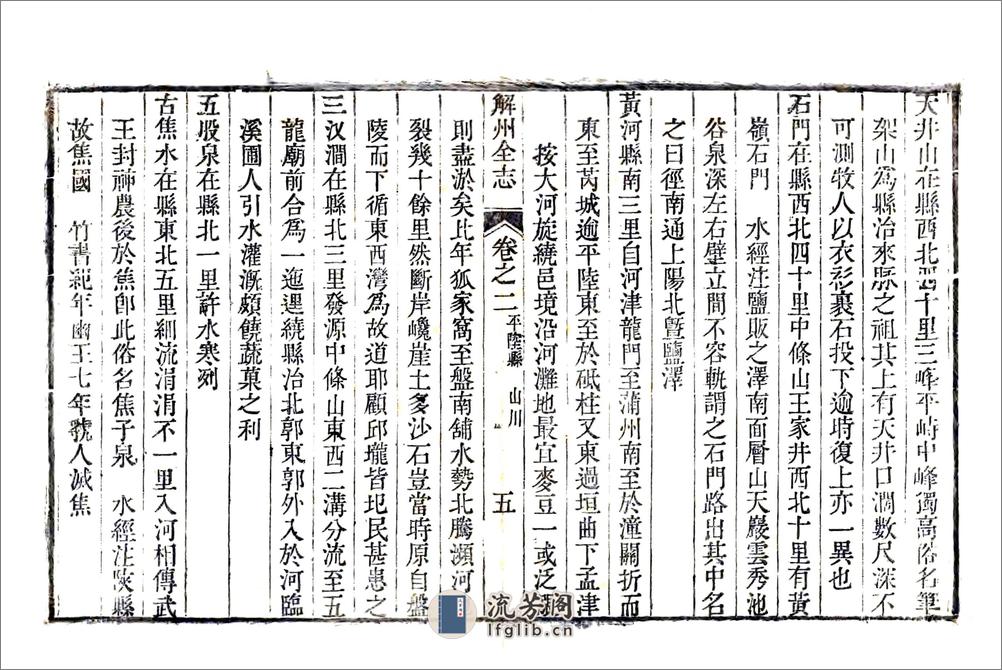 天井山在縣西北四十里三峰平峙中峰獨高俗名筆
架山為縣治來脈之祖其上有天井口濶數尺深不
可測牧人以衣衫裹石投下逾時復上亦一異也
石門在縣西北四十里中條山王家井西北十里有黃
嶺石門　水經注鹽販之澤南面層山天巖雲秀池
谷泉深左右壁立間不容軌謂之石門路出其中名
之曰徑南通上陽北暨鹽澤
黃河縣南三里自河津龍門至蒲州南至於潼關折而
東至芮城逾平陸東至於砥柱又東過垣曲下孟津
按大河旋繞邑境沿河灘地最宜麥豆一或泛漲
解州全志　卷之二　平陸縣　山川　五
則盡淤矣比年狐家窩至盤南舖水勢北騰瀕河
裂幾十餘里然斷岸巉崖土多沙石豈當時原自盤
陵而下循東西灣為故道耶顧邱壠皆圯民甚患之
三汊澗在縣北三里發源中條山東西二溝分流至五
龍廟前合為一迤邐繞縣治北郭東郭外入於河臨
溪圃人引水灌溉頗饒蔬菓之利
五股泉在縣北一里許水寒冽
古焦水在縣東北五里細流涓涓不一里入河相傳武
王封神農後於焦卽此俗名焦子泉　水經注陝縣
故焦國　竹書紀年幽王七年虢人滅焦
流芳閣
lfglib.cn